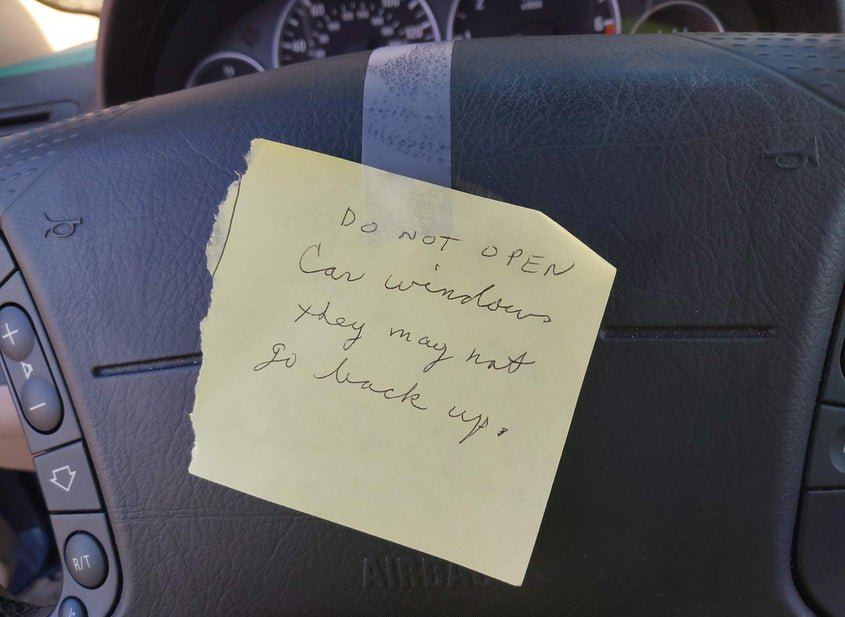 DO NOT OPEN
Car windows
they may not
go back up.
+
-
R/T
AIRBAG